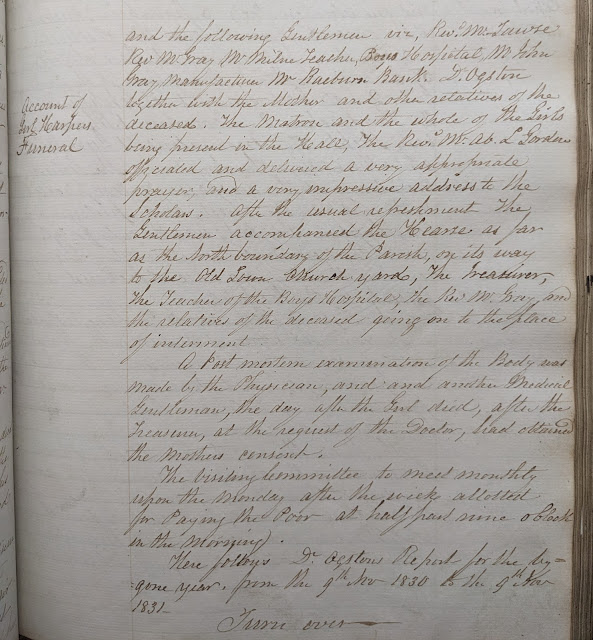 and the following Gentlemen viz, Revd. Mr.
Rev Mr Gray Mr Milne Teacher, Boys Hospital, Mr John
Gray Manufacturer Mr Raeburn Bank Dr. Ogston
together with the Mother and other relatives of the
Account of
Girl Harpers
Funeral
deceased. The Matron and the whole of the Girls
being present in the Hall, The Revd. Mr. Ab. L Gordon
officiated and delivered a very appropriate
prayer, and a very impressive address to the
Scholars. After the usual refreshment The
Gentlemen accompanied the Hearse as far
as the North boundary of the Parish, on its way
to the Old Town Church yard, The Treasurer,
The Teacher of the Boys Hospital, the Rev Mr. Gray, and
the relatives of the deceased going on to the place
of interment.
A Post mortem examination of the Body was
made by the Physician, and and another Medical
Gentleman, the day after the Girl died, after the
Treasurer, at the request of the Doctor, had obtained
the Mothers consent.
The Visiting Committee to meet monthly
upon the Monday after the week allotted
for Paying the Poor at half past nine o'Clock
in the Morning).
Here follows Dr. Ogstons Report for the by=
=gone year. from the 9th Nov 1830 to the 9th Nov
1831—
Turn over—